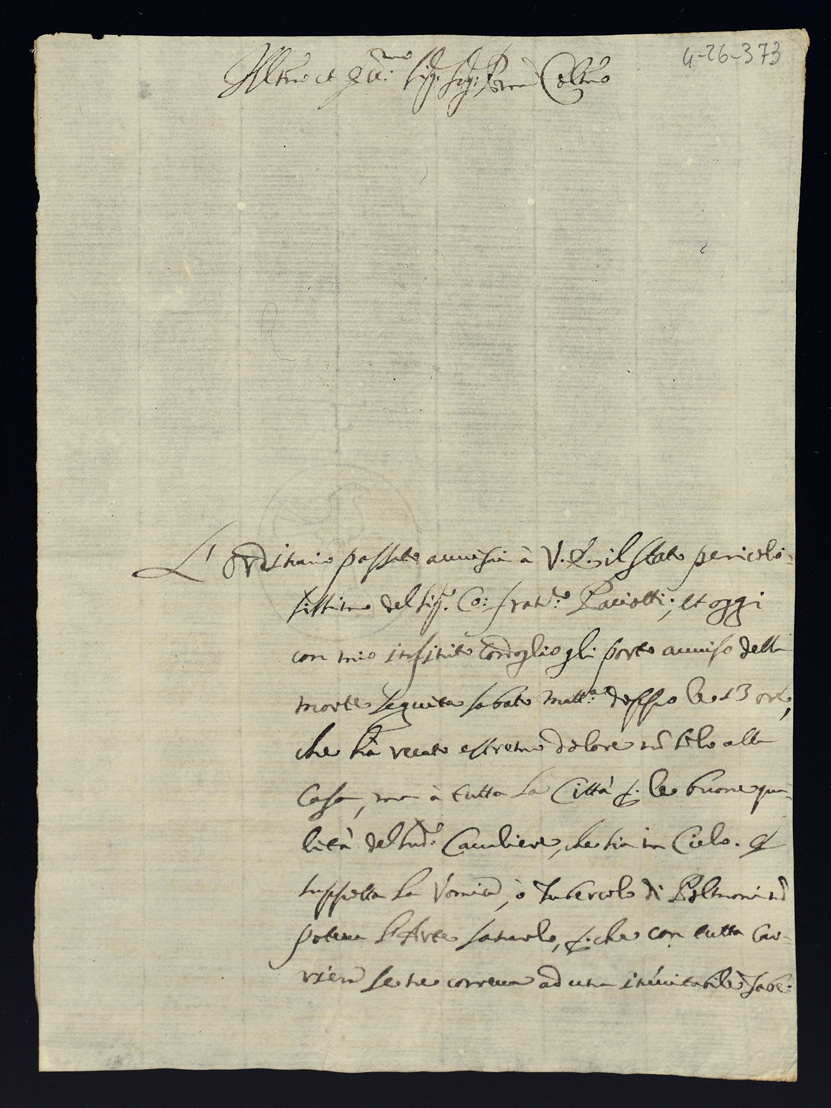 4-26-373
Ill.mo et Ecc.mo Sig.r Sig.r P.ron Col.mo
L'ordinario passato auuisai à V. E. il stato pericolo-
sissimo del Sig.r Co: Fran.co Paciotti; et oggi
con mio infinito cordoglio gli porto auuiso della
morte seguita sabato matt.a doppo le 13 ore,
che hà recato estremo dolore nō solo alla
Casa, mà à tutta la Città p. le buone qua-
lità del Cavaliere, che sia in Cielo.
suppossta la Vomica, ò Tubercolo di Polmoni nō
poteua l'Arte sanarlo, p. che con tutta car-
riera se ne correua ad una ineuitabile Tabe.